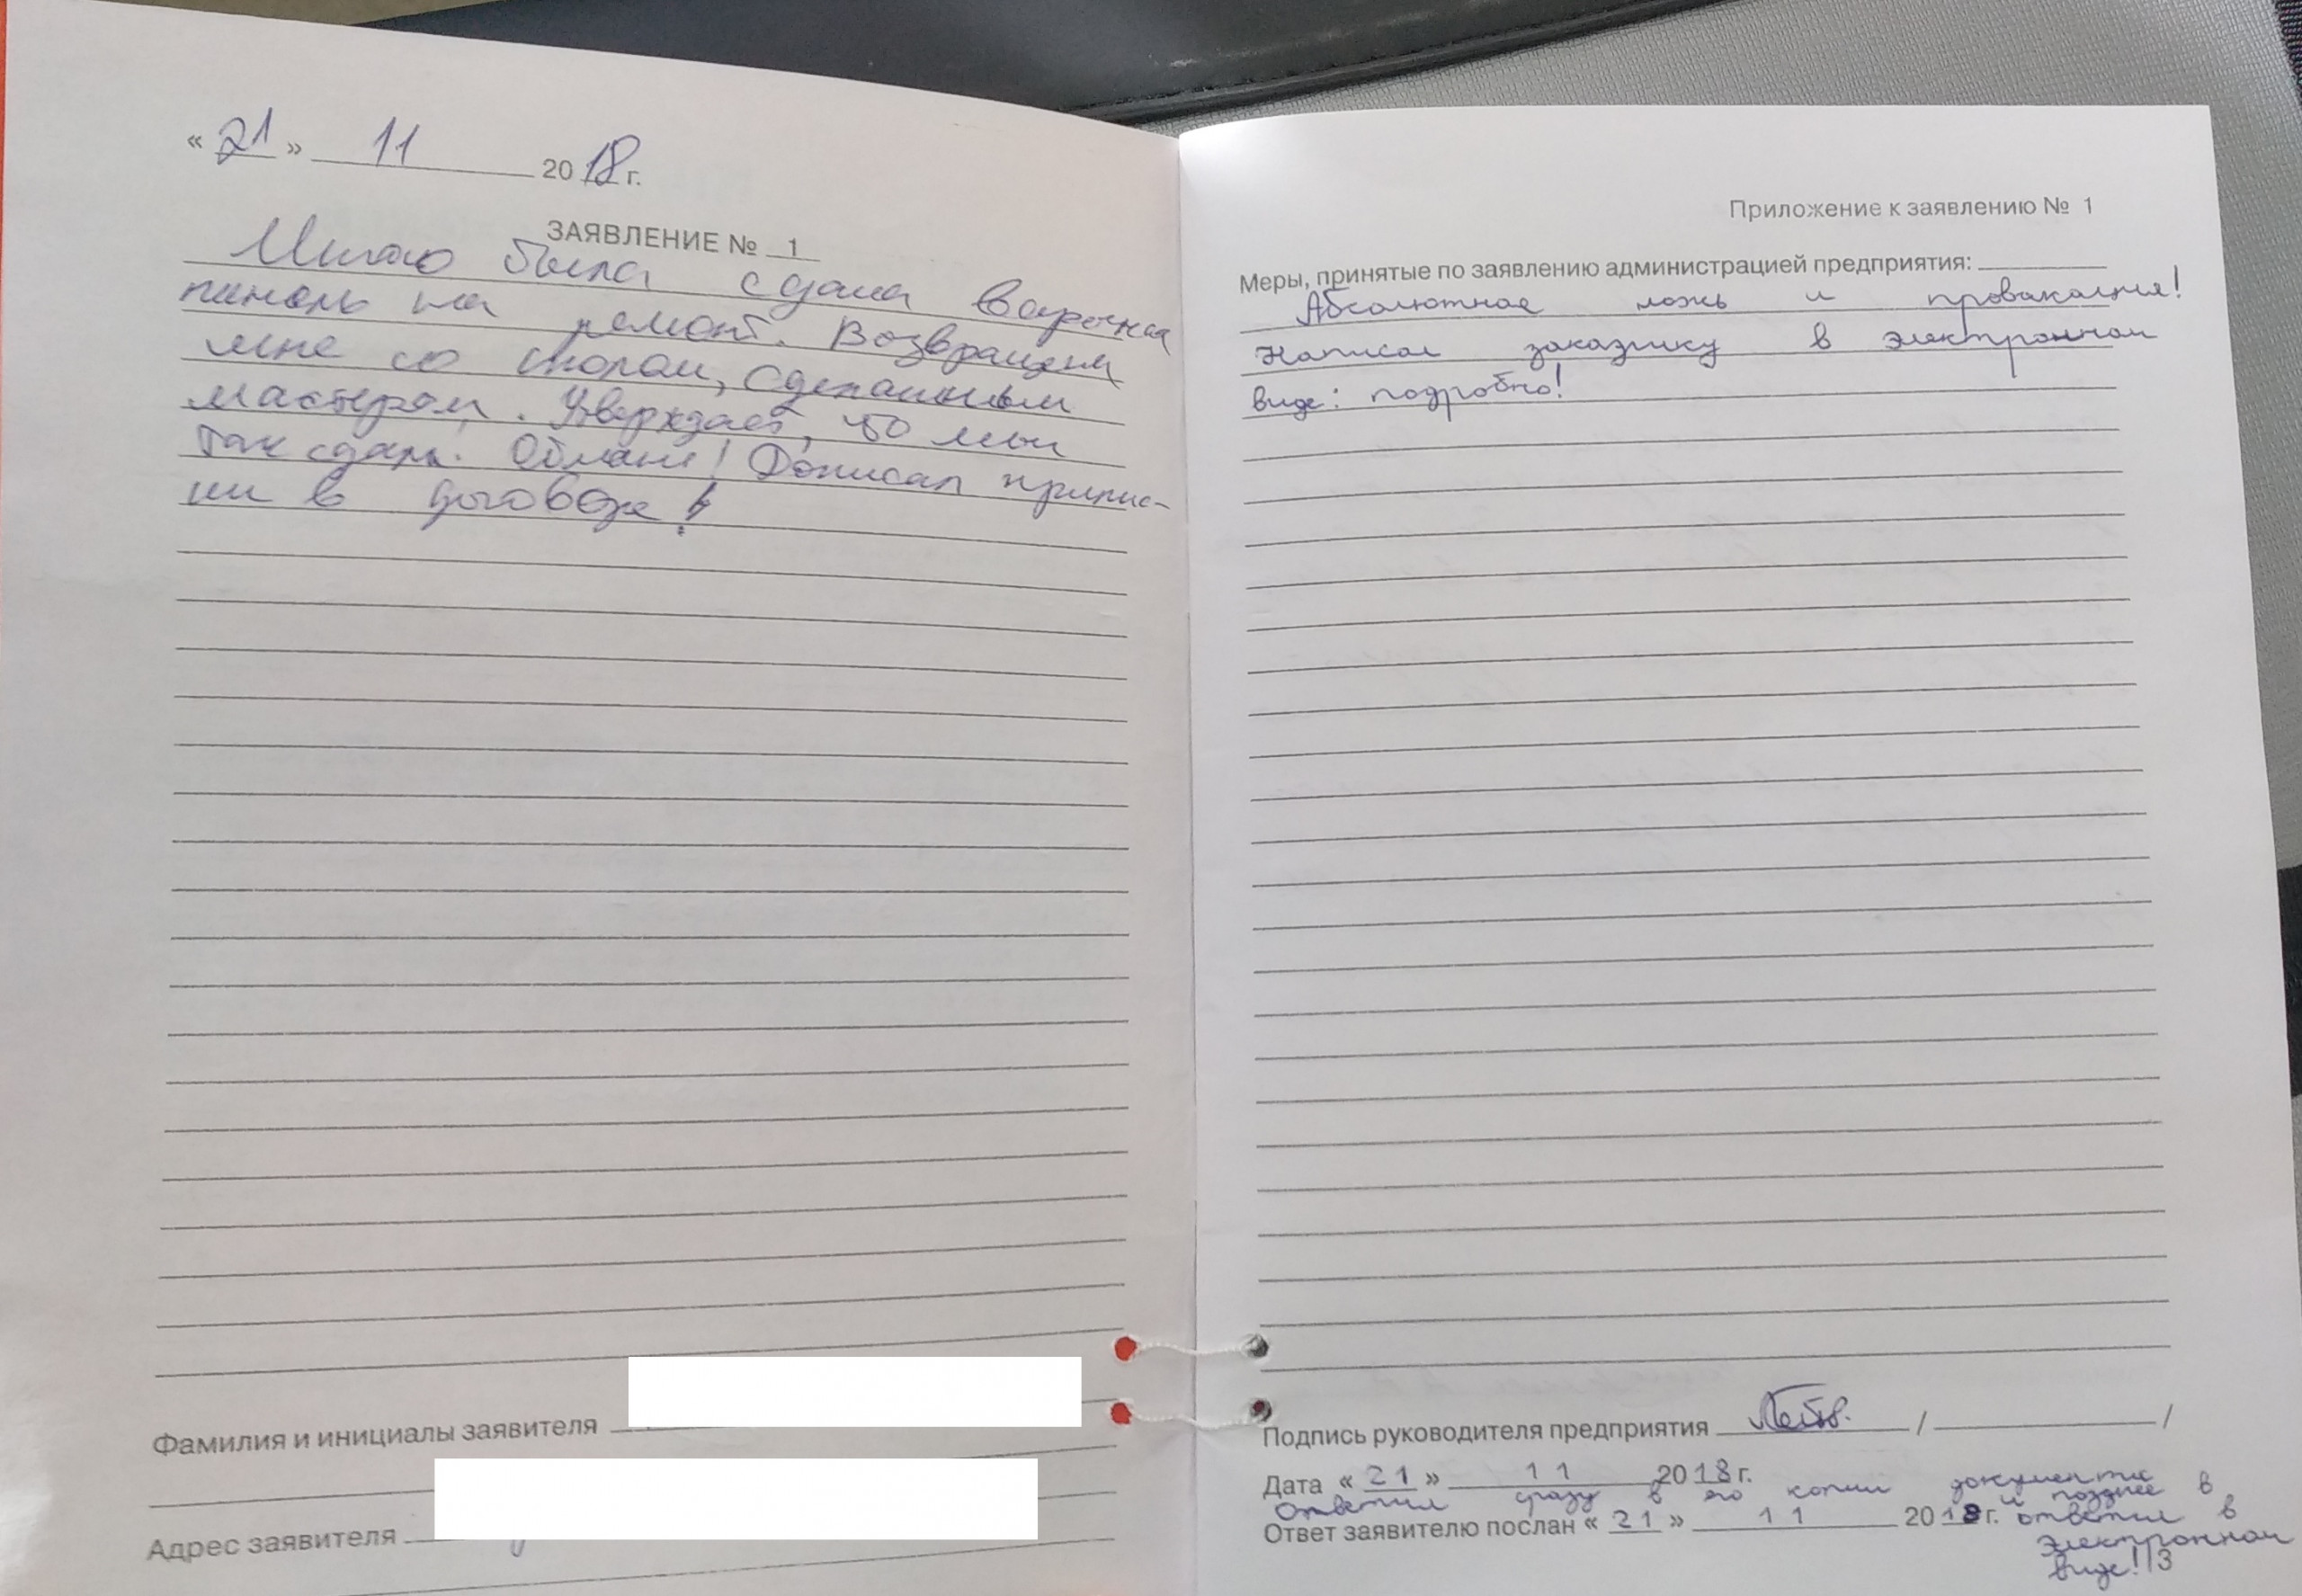 « 21 » 11 2018 г.
ЗАЯВЛЕНИЕ № 1
Мною была сдана варочная
панель на ремонт. Возвращена
мне со сколом, сделанным
мастером. Утверждает, что мы
так сдали. Обман! Дописал припис-
ки в договоре!
Фамилия и инициалы заявителя
Адрес заявителя
Приложение к заявлению № 1
Меры, принятые по заявлению администрацией предприятия:
Абсолютная ложь и провакация!
Написал заказчику в электронном
виде: подробно!
Подпись руководителя предприятия / /
Дата « 21 » 11 2018 г.
Ответил сразу в его копии документа и позднее в
Ответ заявителю послан « 21 » 11 2018 г. ответил в
электронном
виде!
13